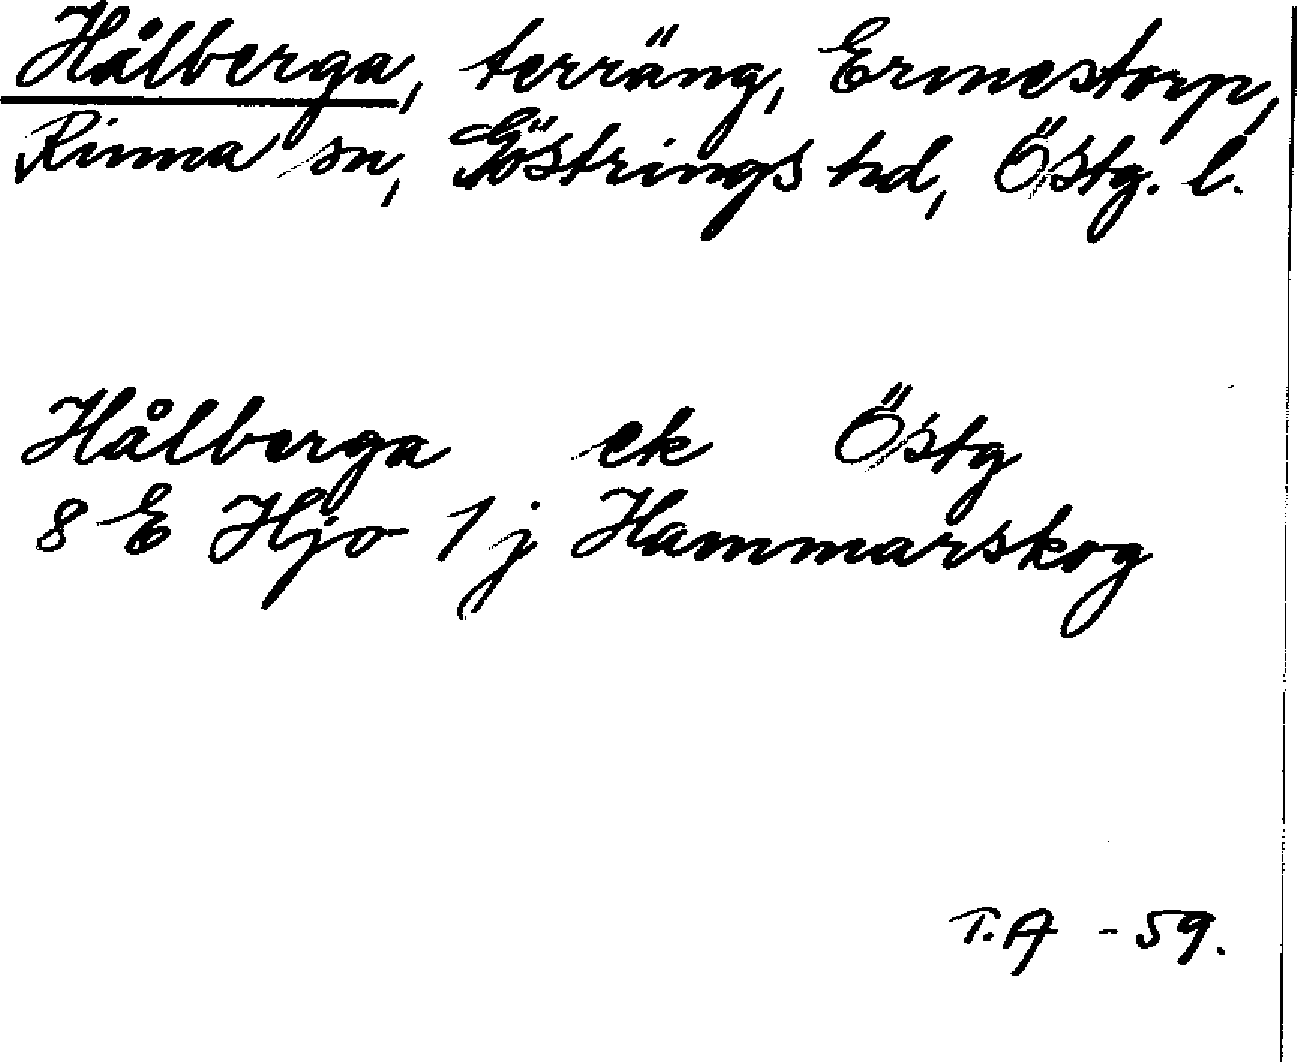 Hålberga, terräng, Ermestorp,
Rinna sn, Göstrings hd, Östg. l.
Hålberga ek Östg
8 E Hjo 1 j Hammarskog
T.A -59.